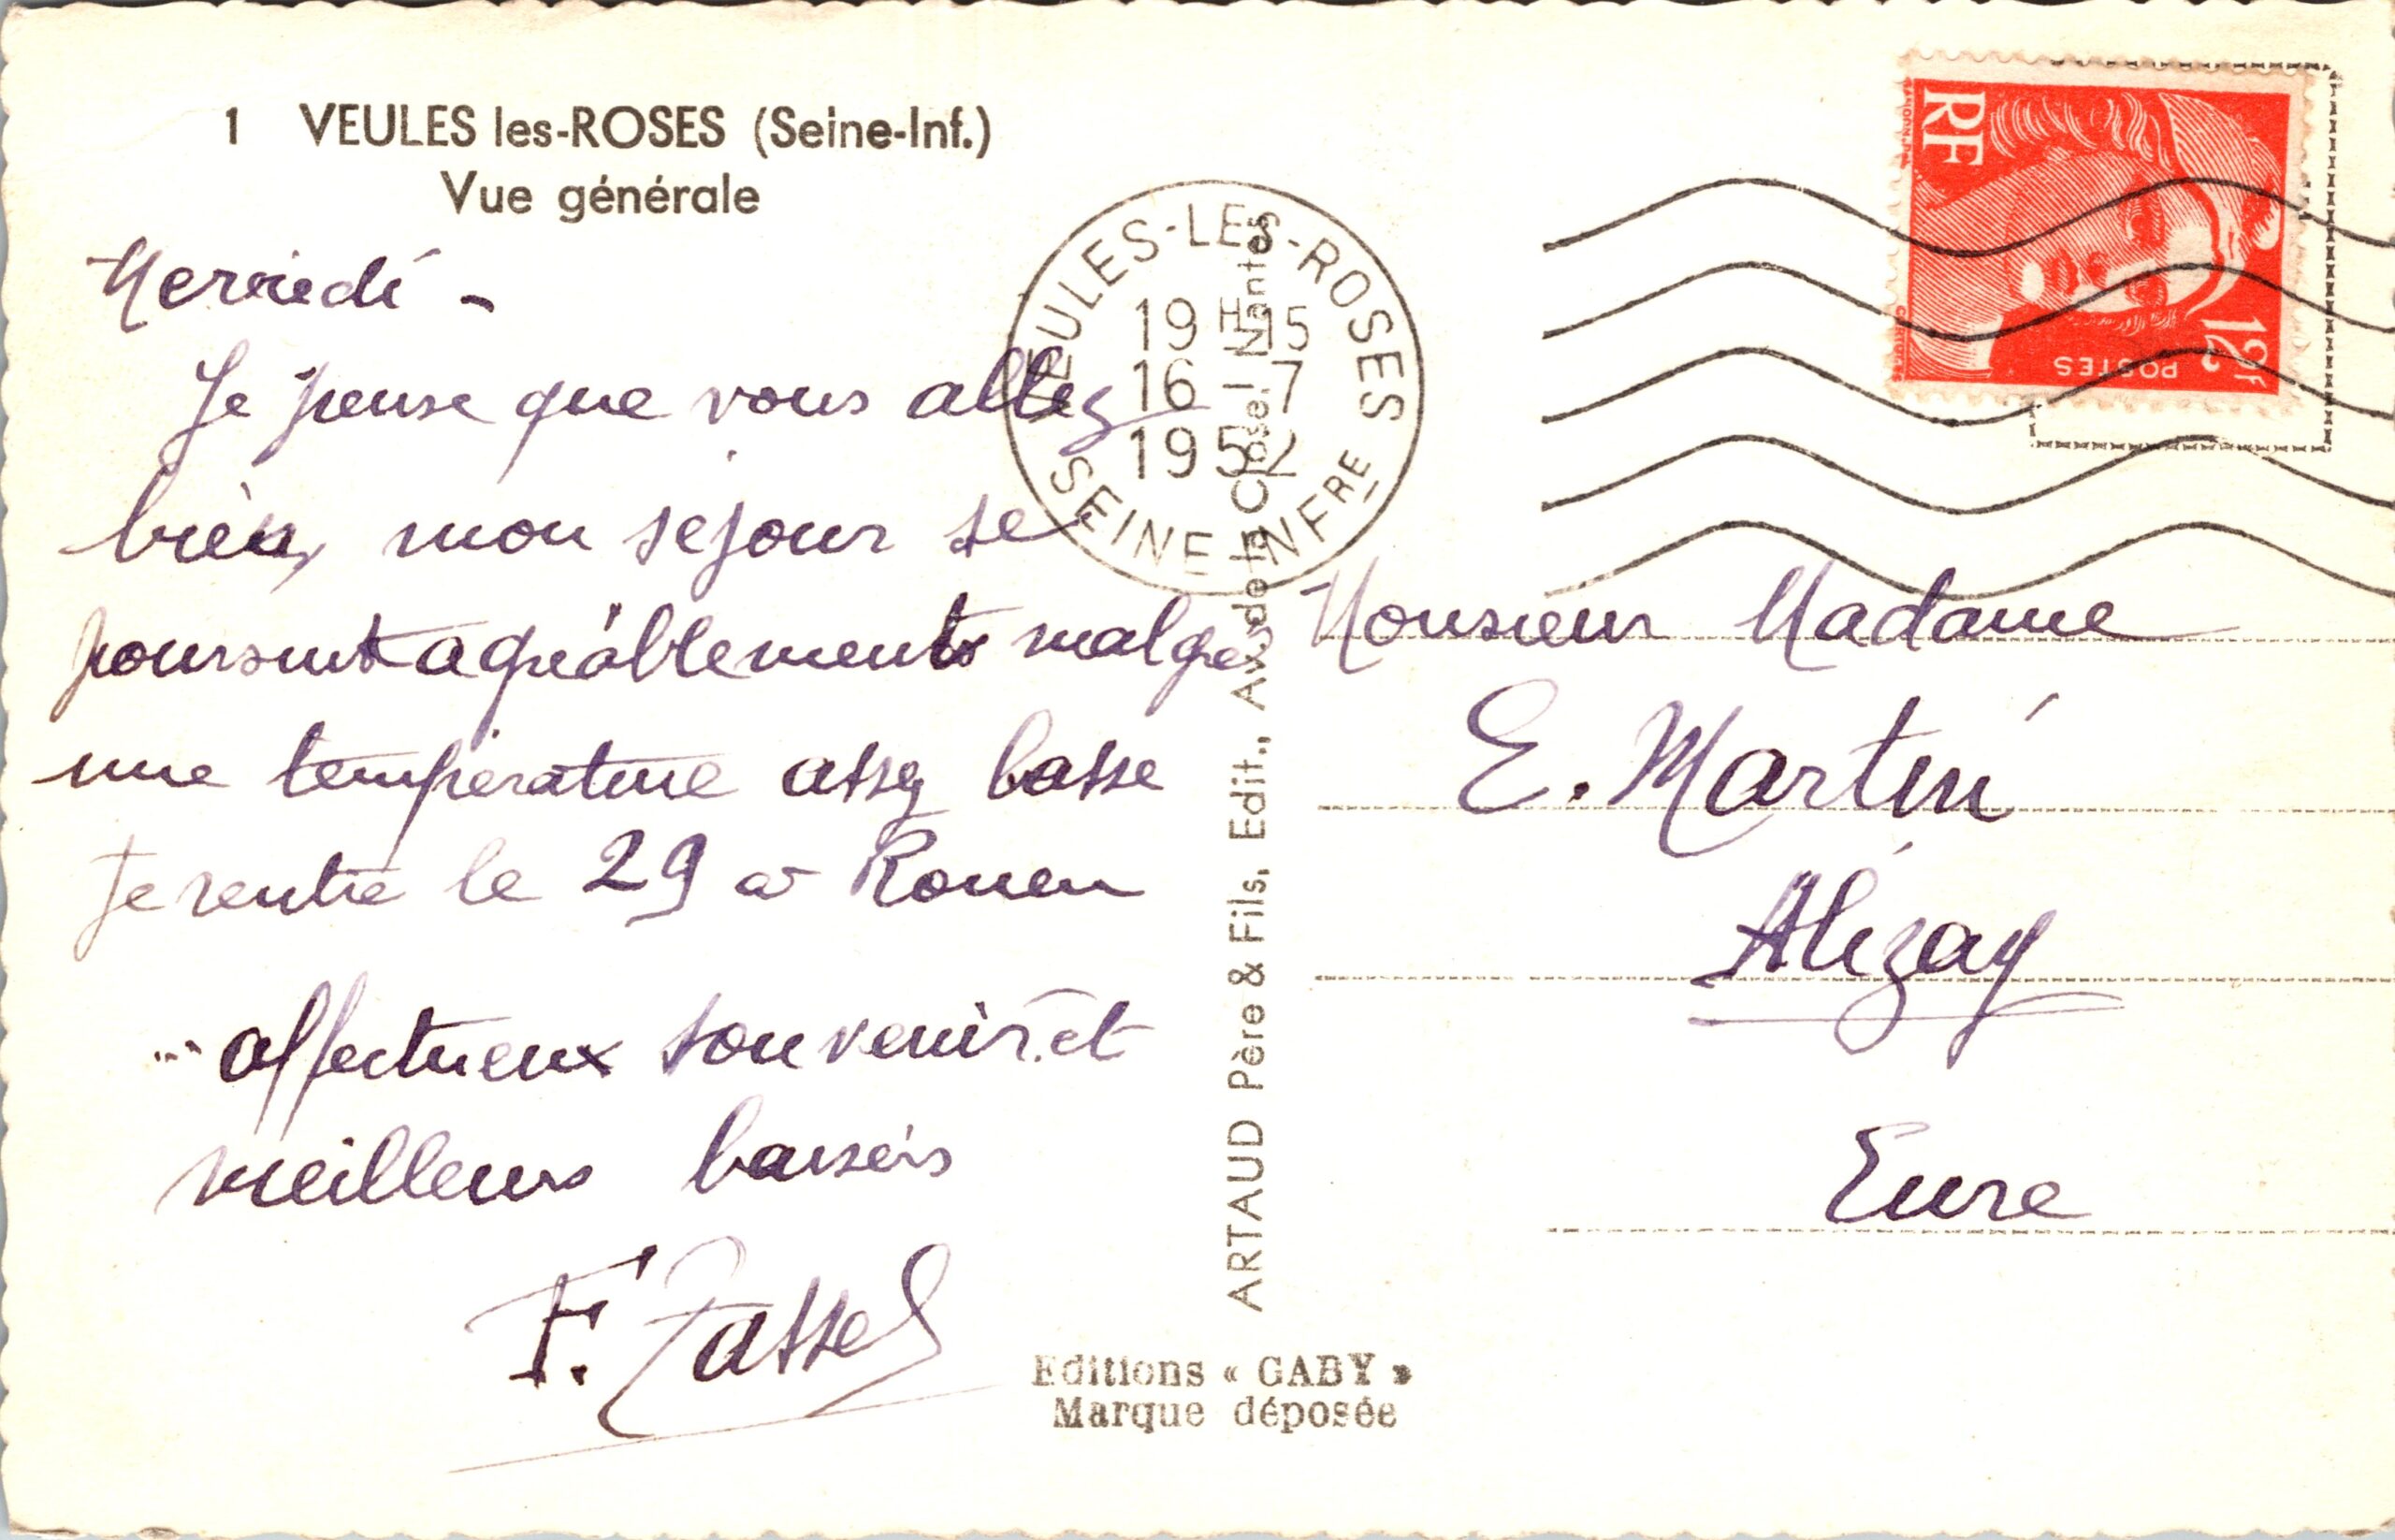 1 VEULES les-ROSES (Seine-Inf.)
Vue générale
Mercredi -
Je pense que vous allez
bien, mon sejour se
poursuit agréablements malgré
une température assez basse
Je rentre le 29 à Rouen
affectueux souvenirs et
meilleurs baisers
F.
VEULES-LES-ROSES
19 H 15
16 7
1952
SEINE INFRE
RF
POSTES
12F
Monsieur Madame
E. Martin
Alizay
Eure
ARTAUD Père & Fils, Edit., Av. de la Close, Nantes
Editions « GABY »
Marque déposée